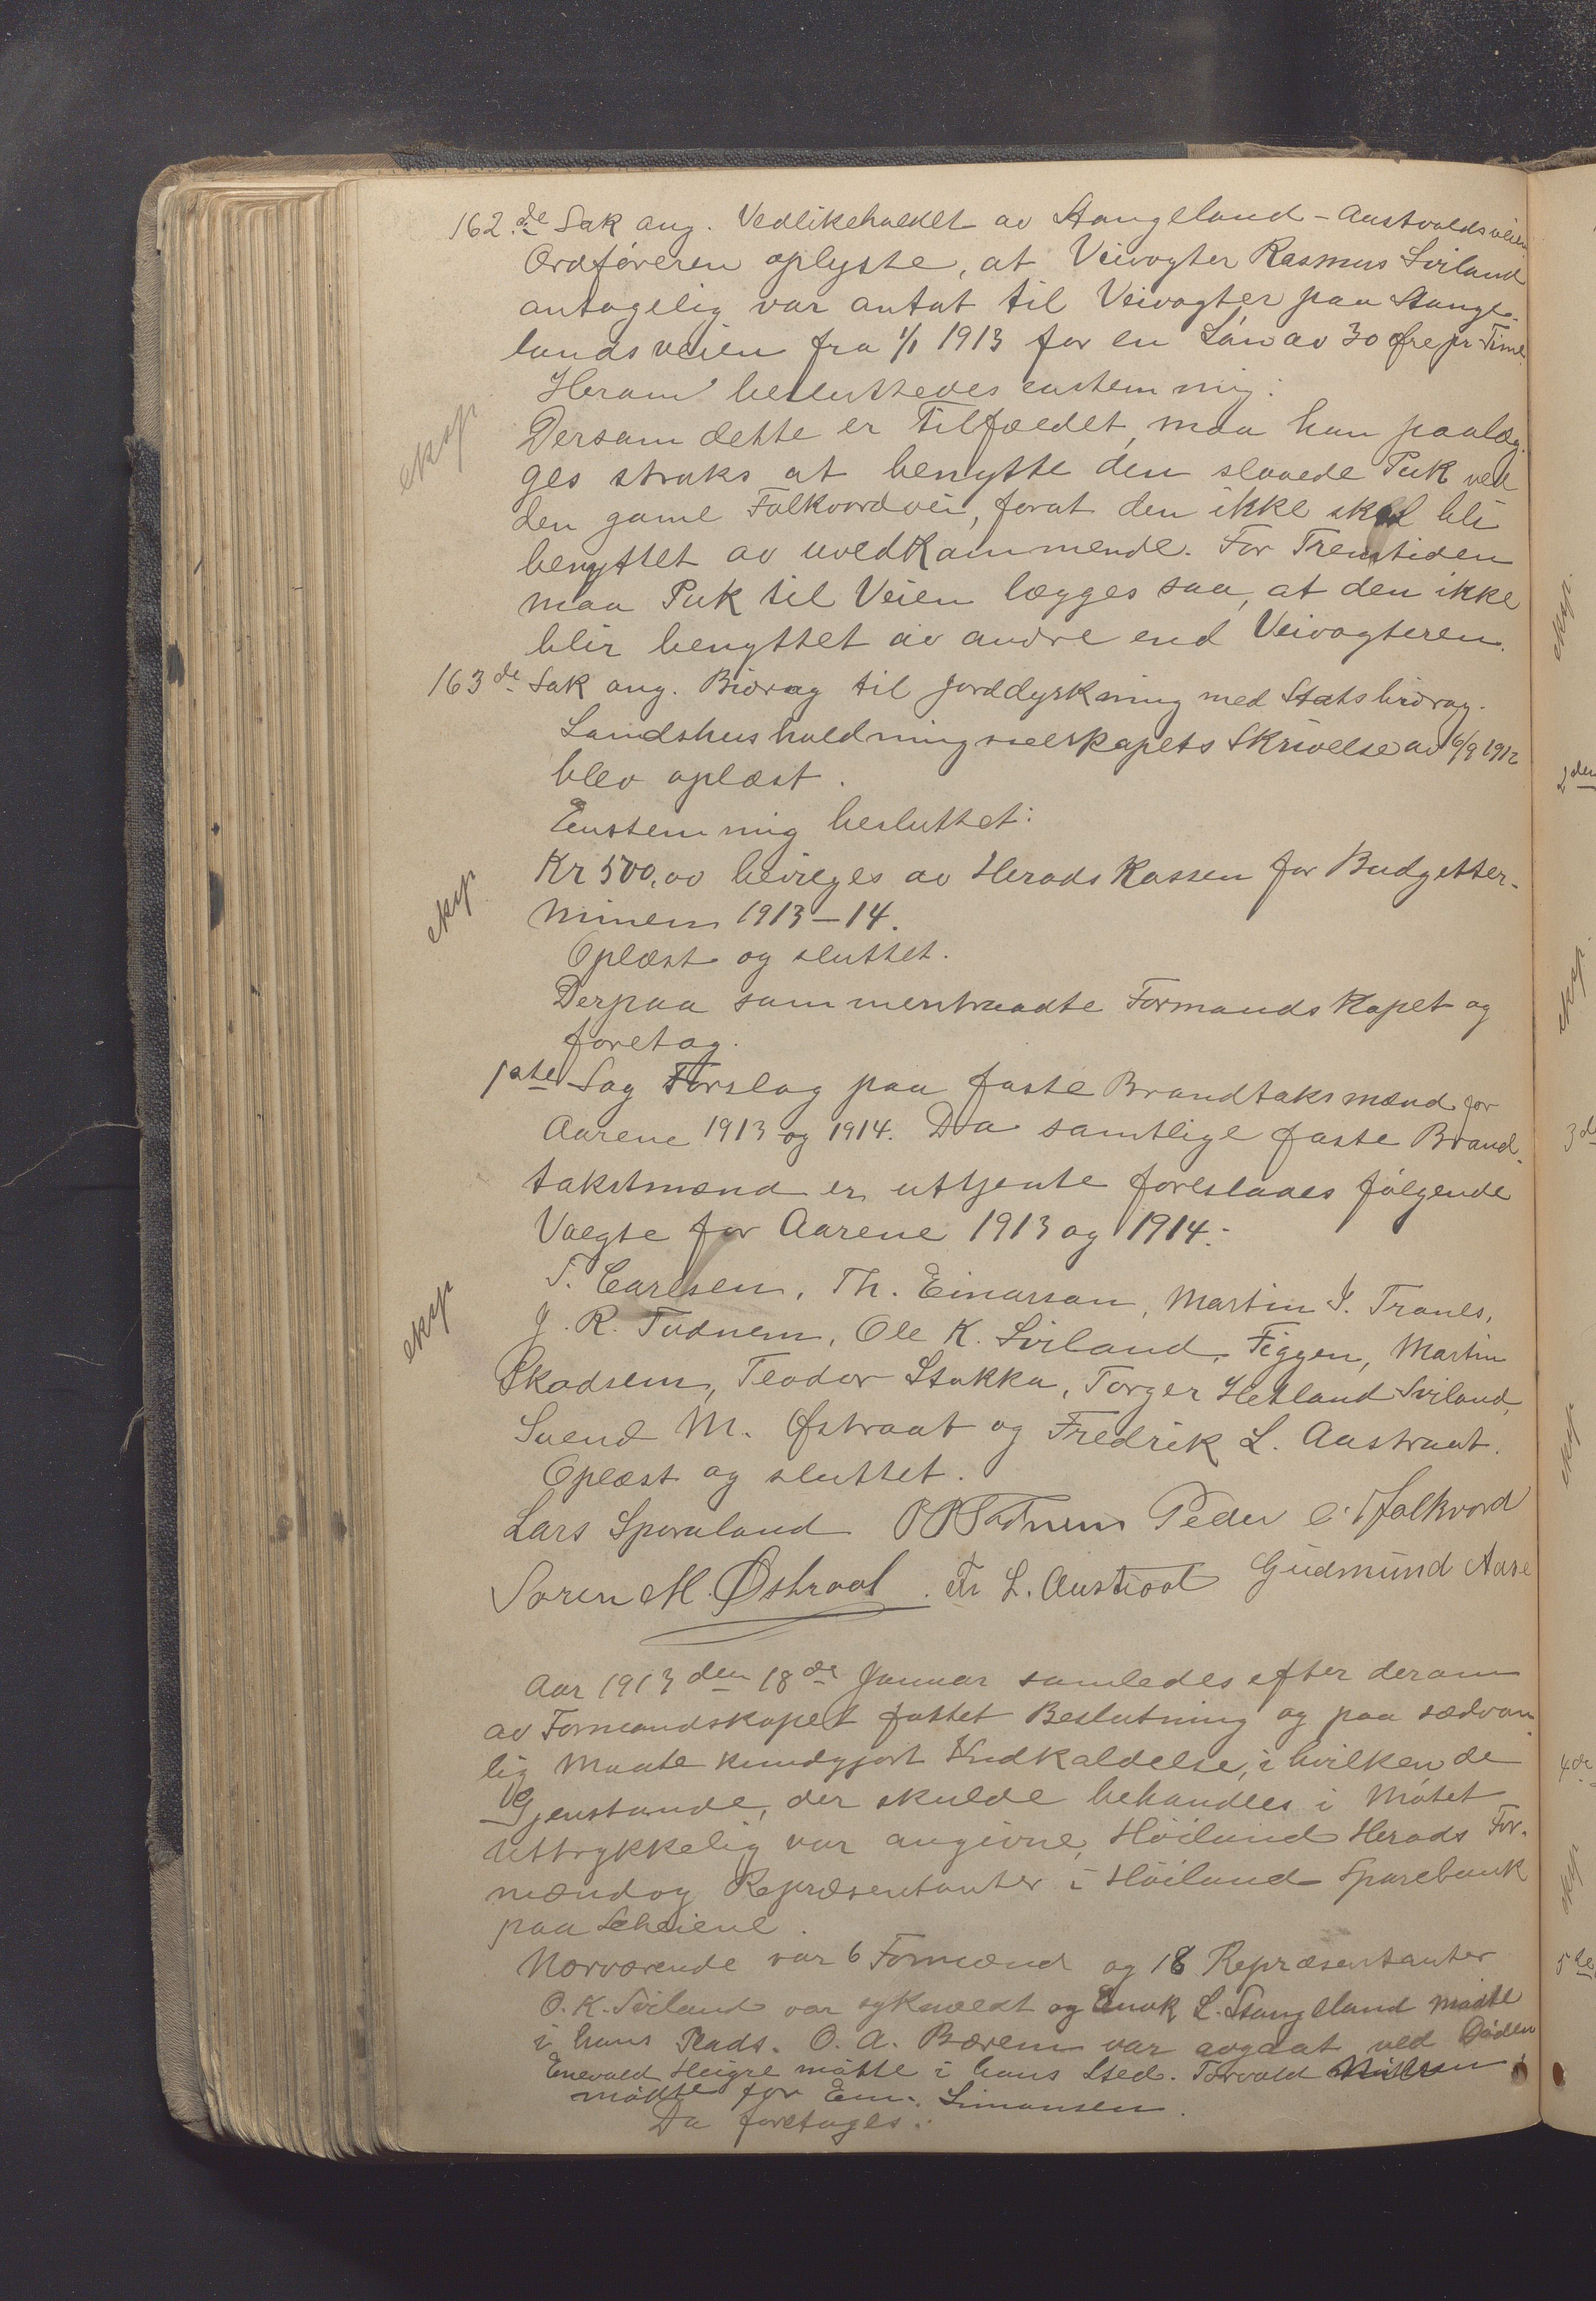 162.de Sak ang. Vedlikeholdet av Stangeland-Austvoldsveien
Ordføreren oplyste, at Veivogter Rasmus Sviland
antagelig var antat til Veivogter paa Stange-
landsveien fra 1/1 1913 for en Løn av 30 Øre pr Time.
Herom besluttedes enstemmig:
eksp
Dersom dette er Tilfældet, maa han paalæg-
ges straks at benytte den slaaede Puk ved
den gaml Folkvordvei, forat den ikke skal bli
benyttet av uvedkommende. For Fremtiden
maa Puk til Veien lægges saa, at den ikke
blir benyttet av andre end Veivogteren.
163de Sak ang. Bidrag til Jorddyrkning med Statsbidrag.
Landhusholdningsselskapets Skrivelse av 6/9 1912
blev oplæst.
Enstemmig besluttet:
eksp.
Kr 500,00 bevilges av Herads Kassen for Budgetter-
minen 1913-14.
Oplæst og sluttet.
Derpaa sammentraadte Formandskapet og
foretog.
1ste Sag Forslag paa faste Brandtaksmænd for
Aarene 1913 og 1914. Da samtlige faste Brand-
takstmænd er uttjente foreslaaes følgende
Valgte for Aarene 1913 og 1914:
eksp
T. Carlsen, Th. Einarson, Martin I. Tranes,
J. R. Tudnem, Ole K. Sviland, Figgen, Martin
Skadsem, Teodor Stokka, Torger Hetland Sviland,
Svend M. Østraat og Fredrik L. Austraat.
Oplæst og sluttet.
Lars Sporaland Peder Folkvord
Søren M. Østraat. Fr L. Austraat Gudmund Aase
Aar 1913 den 18de Januar samledes efter derom
av Formandskapet fattet Beslutning og paa sædvan-
lig Maate kundgjort Indkaldelse, i hvilken de
Gjenstande, der skulde behandles i Møtet
uttrykkelig var angivne, Høiland Herads For-
mænd og Repræsentanter i Høiland Sparebank
paa Scheiene.
Nærværende var 6 Formænd og 18 Repræsentanter
O. K. Sviland var sykmeldt og Enok L. Stangeland mødte
i hans Plads. O. A. Bærem var avgaat ved Døden
Enevald Heigre møtte i hans Sted. Torvald Nilsen
mødte for Em. Simonsen.
Da foretages:
2den
3d
4de
5te
eksp.
eksp.
eksp
eksp